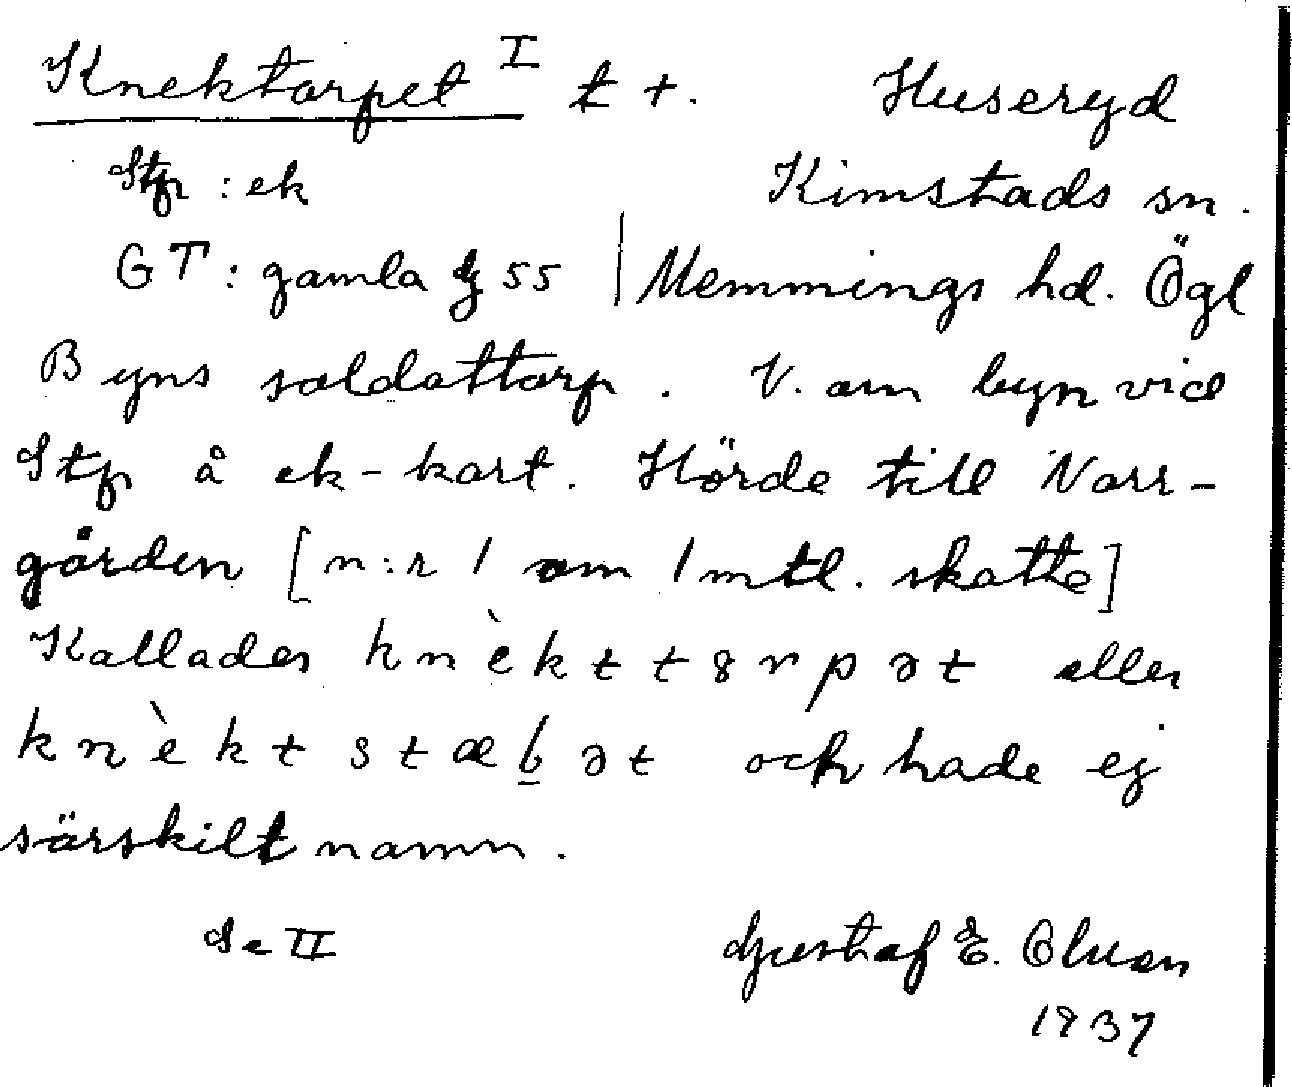 Knektorpet I t +. Huseryd
Stp : ek Kimstads sn.
GT : gamla g 55 | Memmings hd. Ögl
Byns soldattorp. V. om byn vid
Stp å ek-kart. Hörde till Norr-
gården [n:r 1 om 1 mtl. skatte]
Kallades knὲkttȣrpət eller
knὲkt stæb̲ət och hade ej
särskilt namn.
Se II Gustaf E. Olsson
1937